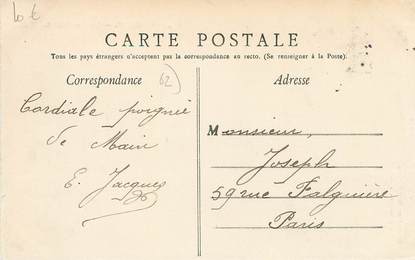 10 €
CARTE POSTALE
Tous les pays étrangers n'acceptent pas la correspondance au recto. (Se renseigner à la Poste).
Correspondance
62
Cordiale poignée
de Main
E. Jacques
Adresse
Monsieur,
Joseph
59 rue Falguière
Paris